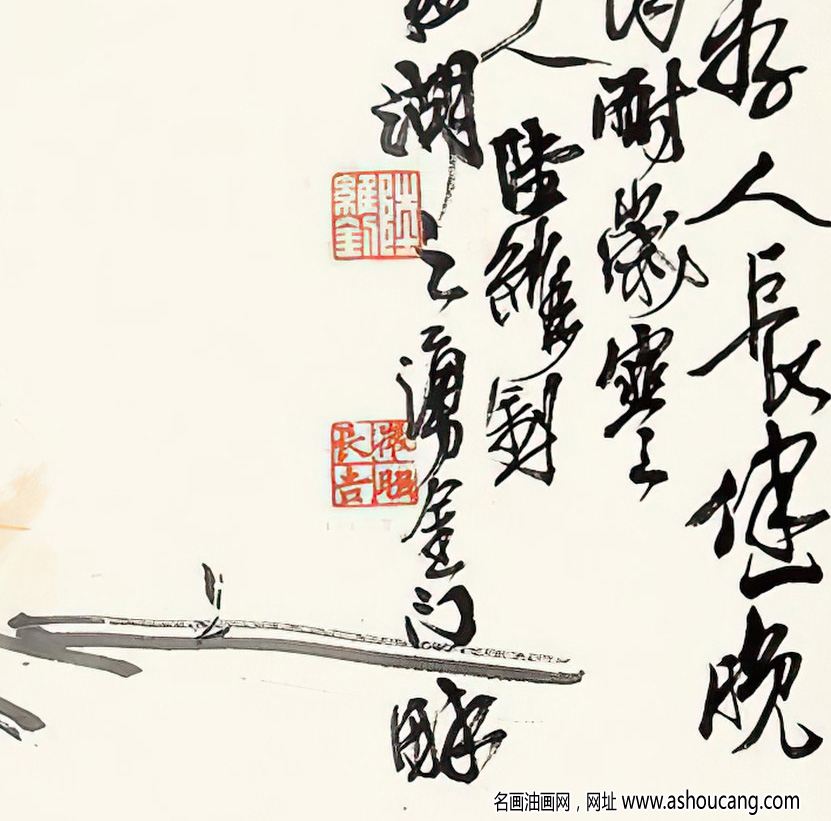 人長健晚
耐歲寒
陸維釗
湖之湧金門畔
陸維釗
微昭長吉
名画油画网，网址 www.ashoucang.com